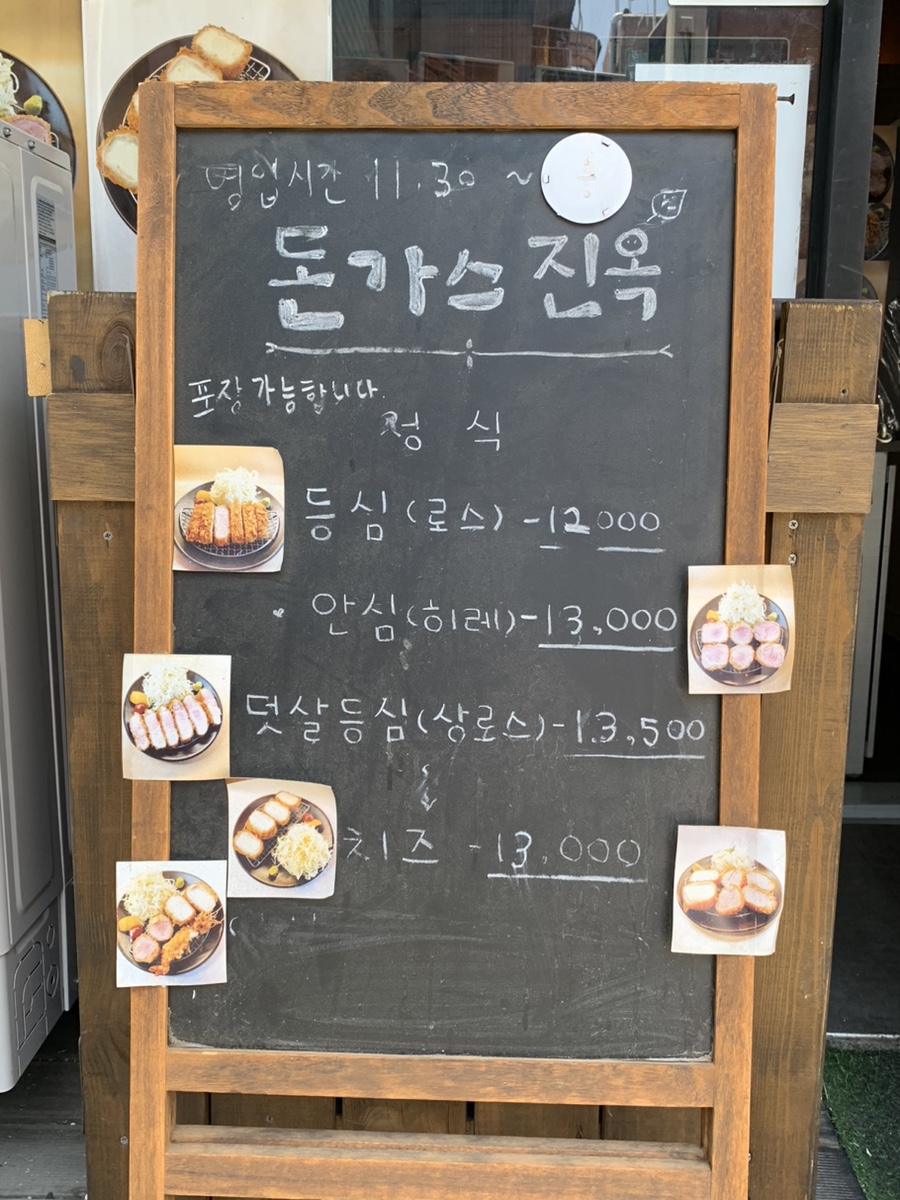 영업시간 11.30 ~
돈가스 진옥
포장 가능합니다.
정 식
등심(로스) -12000
안심(히레)-13,000
덧살등심(상로스)-13,500
치즈 -13,000